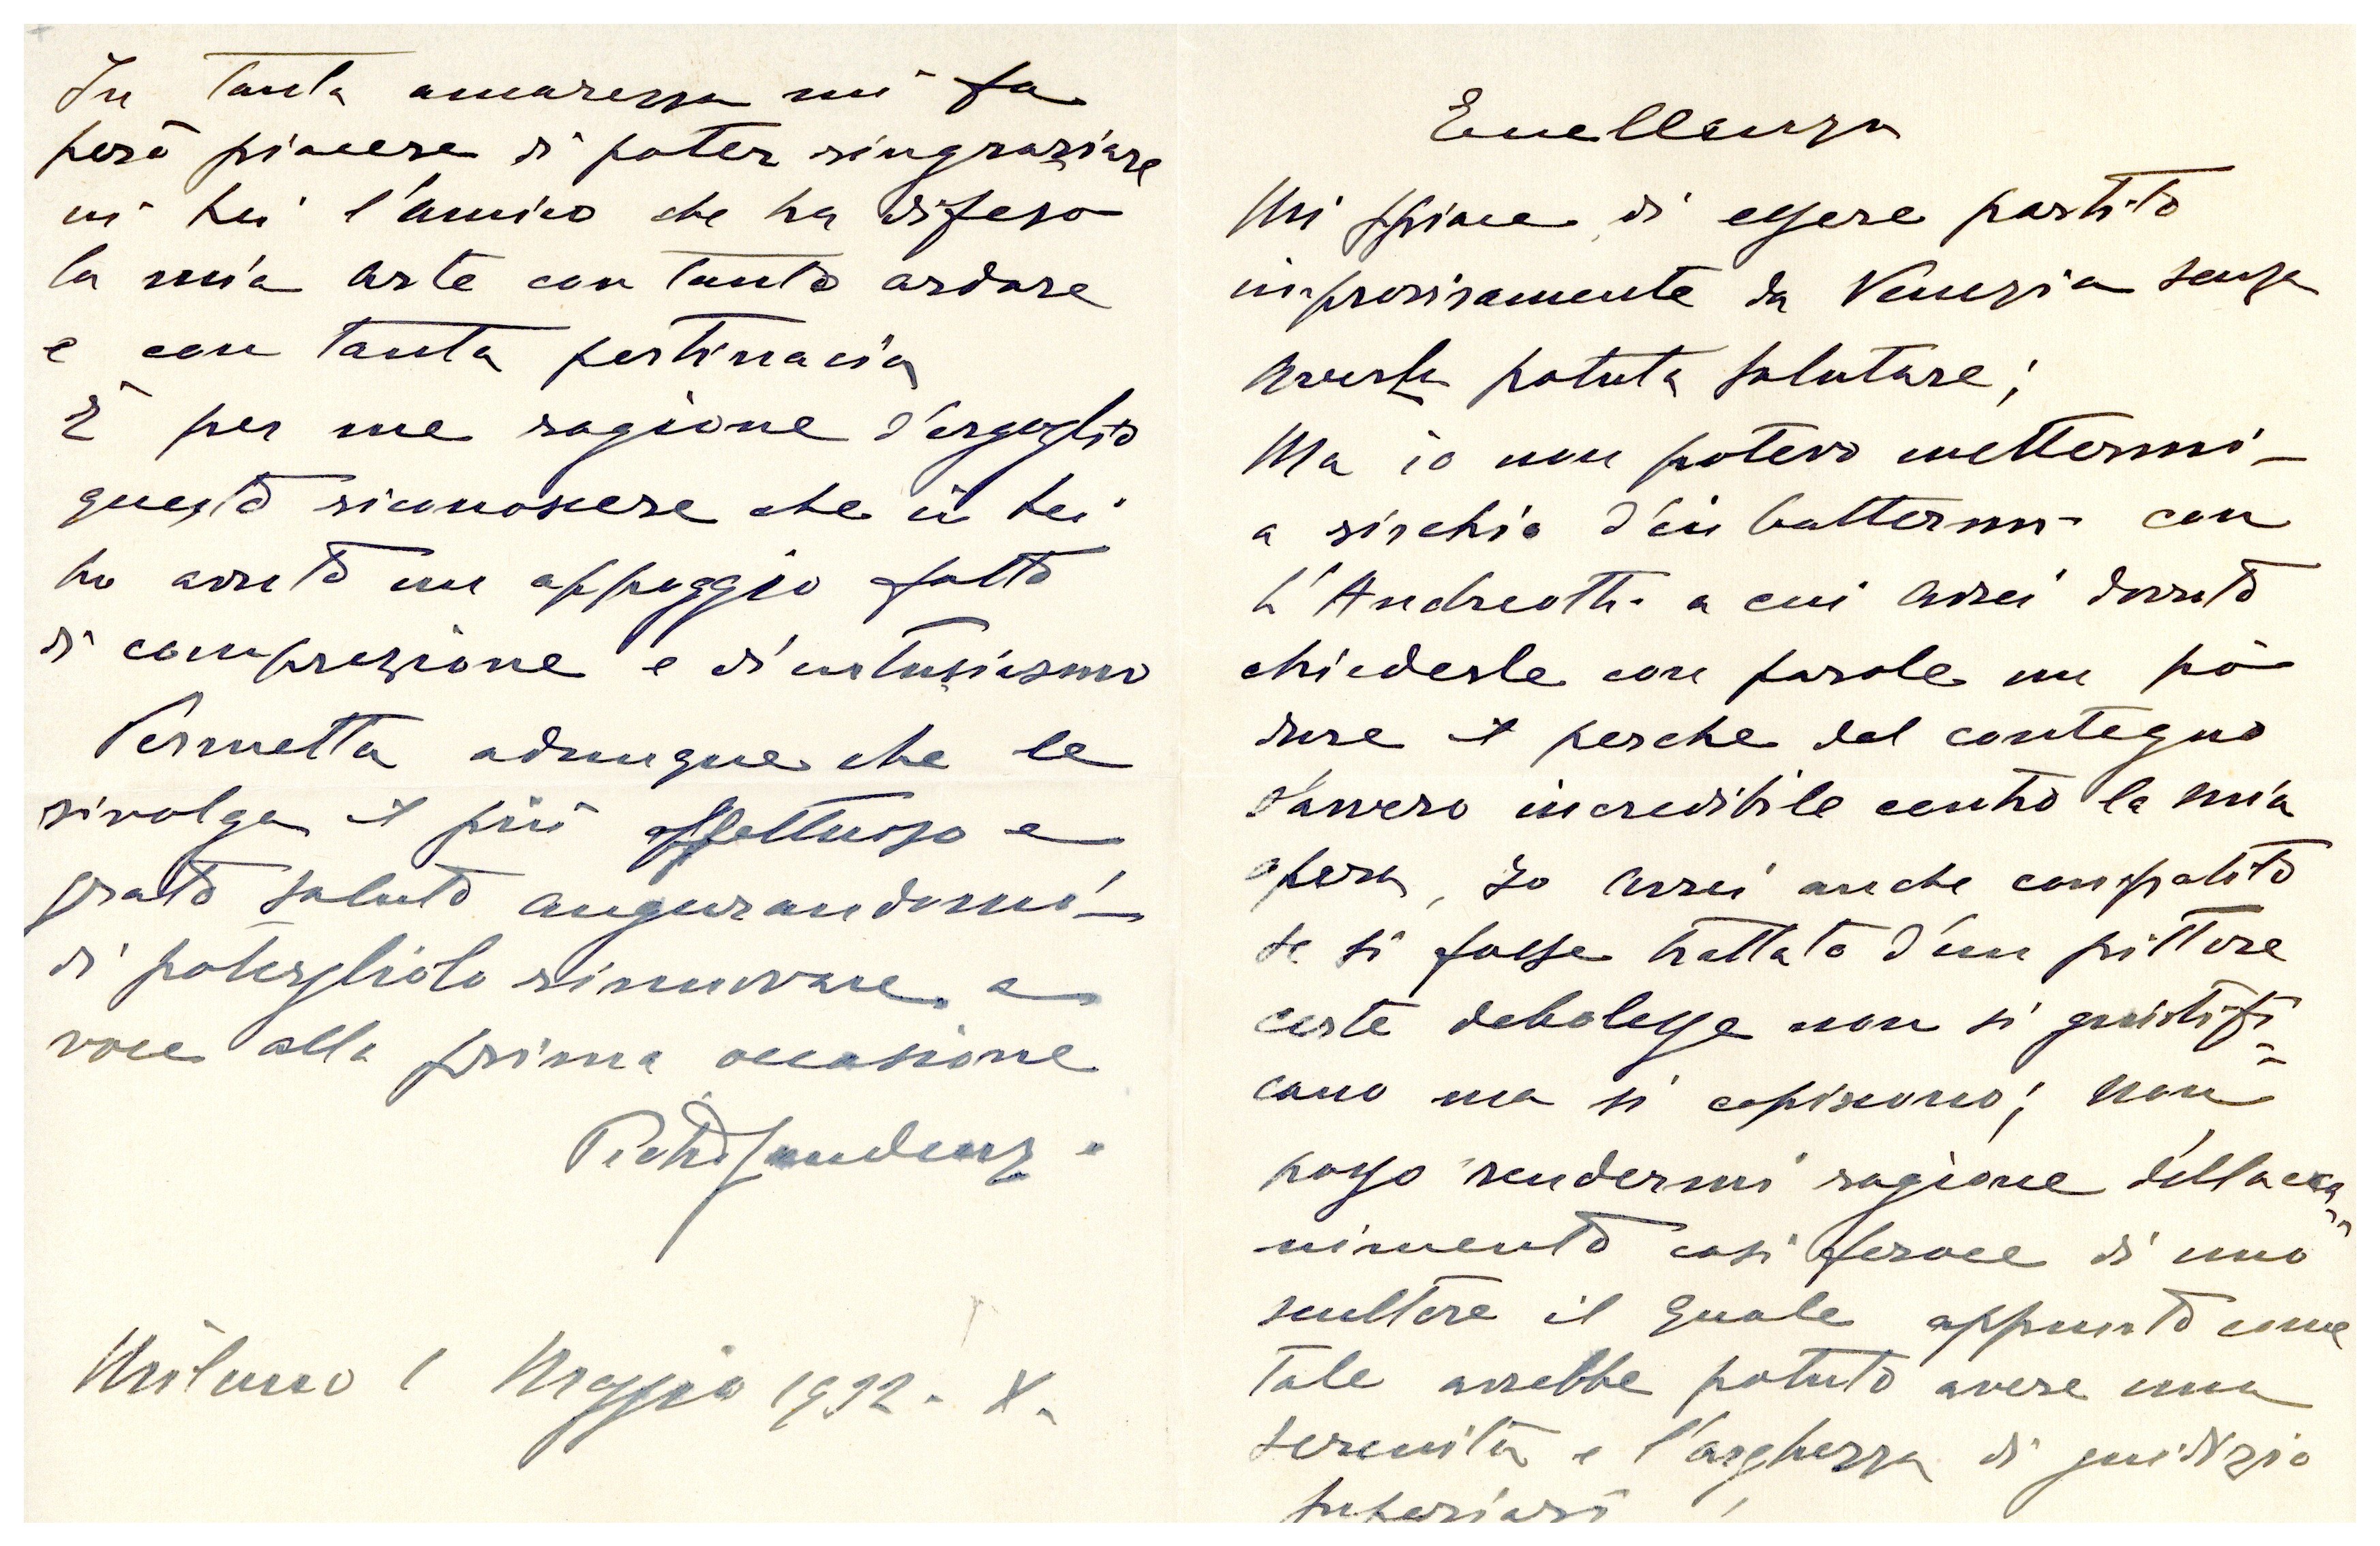 Eccellenza
Mi spiace di essere partito
improvisamente da Venezia senza
averla potuta salutare;
Ma io non potevo mettermi
a rischio d'imbattermi con
L'Andreotti a cui avrei dovuto
chiederle con parole un pò
dure il perche del contegno
d'avvero incredibile contro la mia
opera, Io avrei anche compatito
se si fosse trattato d'un pittore
certe debolezze non si giustifi=
cano ma si capiscono; Non
posso rendermi ragione dell'acca=
nimento cosi feroce di uno
scultore il quale appunto come
tale avrebbe potuto avere una
serenità e l'arghezza di giudizio
superiori!
In tanta amarezza mi fa
però piacere di poter ringraziare
in Lei l'amico che ha difeso
la mia arte con tanto ardore
e con tanta pertinacia
È per me ragione d'orgoglio
questo riconoscere che in Lei
ho avuto un appoggio fatto
di comprezione e di entusiasmo
Permetta adunque che le
rivolga il più affettuoso e
grato saluto augurandomi
di poterglielo rinnovare a
voce alla prima occasione
Pietro Gaudenzi
Milano 1 Maggio 1932 - X.